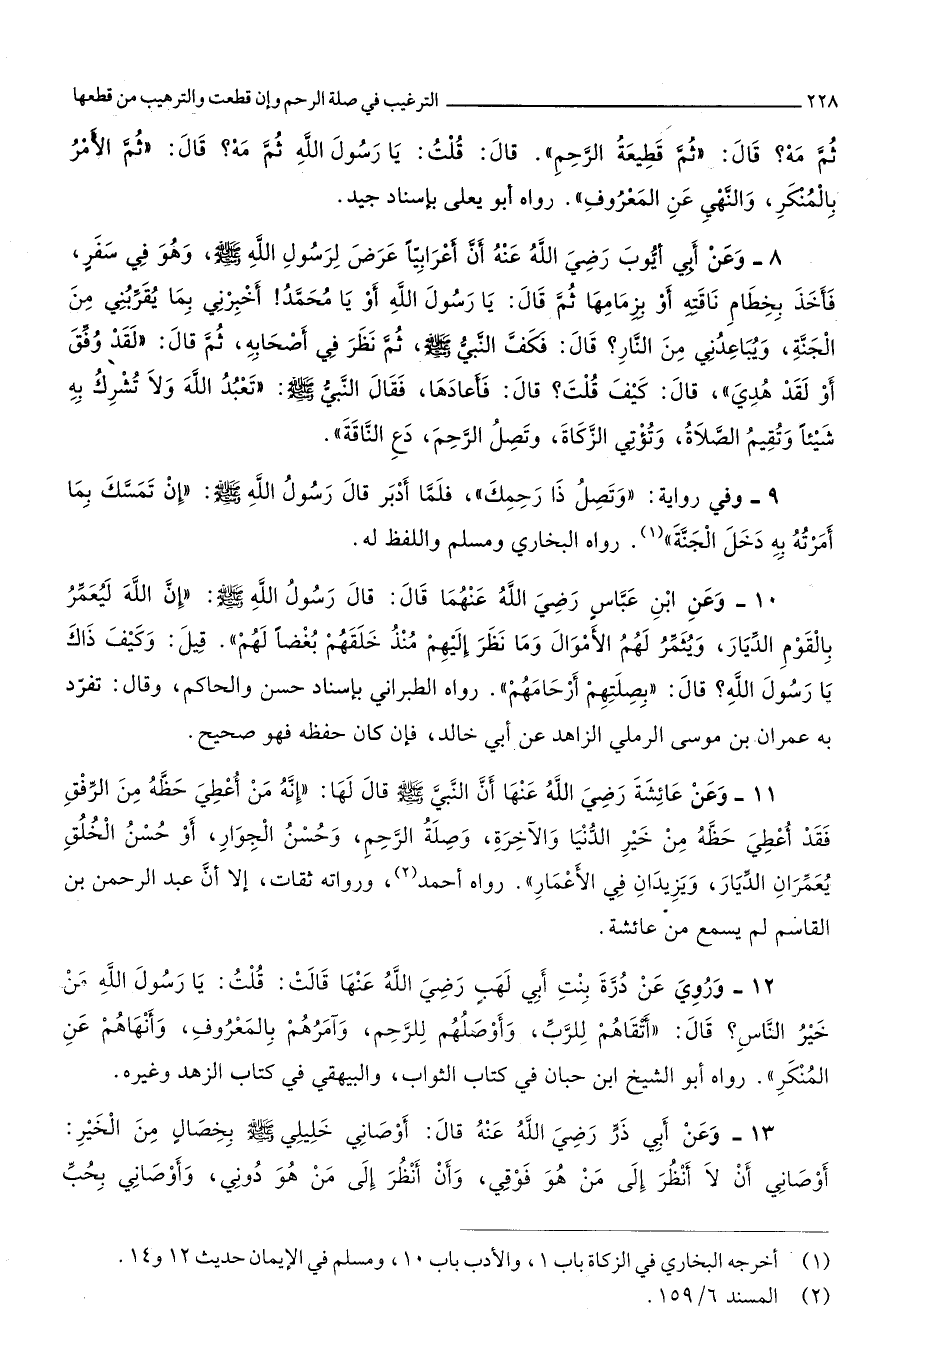 ٢٢٨ ــــــــــ الترغيب في صلة الرحم وإن قطعت والترهيب من قطعها
ثُمَّ مَهْ؟ قَالَ: «ثُمَّ قَطِيعَةُ الرَّحِمِ». قالَ: قُلْتُ: يَا رَسُولَ اللَّهِ ثُمَّ مَهْ؟ قَالَ: «ثُمَّ الأَمْرُ
بِالْمُنْكَرِ، وَالنَّهْيِ عَنِ المَعْرُوفِ». رواه أبو يعلى بإسناد جيد.
٨ ـ وَعَنْ أَبِي أَيُّوبَ رَضِيَ اللَّهُ عَنْهُ أَنَّ أَعْرَابِيّاً عَرَضَ لِرَسُولِ اللَّهِ ﷺ، وَهُوَ فِي سَفَرٍ،
فَأَخَذَ بِخِطَامِ نَاقَتِهِ أَوْ بِزِمَامِهَا ثُمَّ قَالَ: يَا رَسُولَ اللَّهِ أَوْ يَا مُحَمَّدُ! أَخْبِرْنِي بِمَا يُقَرِّبُنِي مِنَ
الْجَنَّةِ، وَيُبَاعِدُنِي مِنَ النَّارِ؟ قَالَ: فَكَفَّ النَّبِيُّ ﷺ، ثُمَّ نَظَرَ فِي أَصْحَابِهِ، ثُمَّ قالَ: «لَقَدْ وُفِّقَ
أَوْ لَقَدْ هُدِيَ»، قالَ: كَيْفَ قُلْتَ؟ قالَ: فَأَعادَهَا، فَقَالَ النَّبِيُّ ﷺ: «تَعْبُدُ اللَّهَ وَلاَ تُشْرِكُ بِهِ
شَيْئاً وَتُقِيمُ الصَّلاَةُ، وَتُؤْتِي الزَّكَاةَ، وتَصِلُ الرَّحِمَ، دَعِ النَّاقَةَ».
٩ ـ وفي رواية: «وَتَصِلُ ذَا رَحِمِكَ»، فلَمَّا أدْبَر قالَ رَسُولُ اللَّهِ ﷺ: «إِنْ تَمَسَّكَ بِمَا
أَمَرْتُهُ بِهِ دَخَلَ الْجَنَّةَ»(١). رواه البخاري ومسلم واللفظ له.
١٠ ـ وَعَنِ ابْنِ عَبَّاسٍ رَضِيَ اللَّهُ عَنْهُمَا قَالَ: قالَ رَسُولُ اللَّهِ ﷺ: «إِنَّ اللَّهَ لَيُعَمِّرُ
بِالْقَوْمِ الدِّيَارَ، وَيُثَمِّرُ لَهُمُ الأَمْوَالَ وَمَا نَظَرَ إِلَيْهِمْ مُنْذُ خَلَقَهُمْ بُغْضاً لَهُمْ». قِيلَ: وَكَيْفَ ذَاكَ
يَا رَسُولَ اللَّهِ؟ قالَ: «بِصِلَتِهِمْ أَرْحَامَهُمْ». رواه الطبراني بإسناد حسن والحاكم، وقال: تفرّد
به عمران بن موسى الرملي الزاهد عن أبي خالد، فإن كان حفظه فهو صحيح.
١١ ـ وَعَنْ عَائِشَةَ رَضِيَ اللَّهُ عَنْهَا أَنَّ النَّبِيَّ ﷺ قالَ لَهَا: «إِنَّهُ مَنْ أُعْطِيَ حَظَّهُ مِنَ الرِّفْقِ
فَقَدْ أُعْطِيَ حَظَّهُ مِنْ خَيْرِ الدُّنْيَا وَالآخِرَةِ، وَصِلَةُ الرَّحِمِ، وَحُسْنُ الْجِوَارِ، أَوْ حُسْنُ الْخُلُقِ
يُعَمِّرَانِ الدِّيَارَ، وَيَزِيدَانِ فِي الأَعْمَارِ». رواه أحمد(٢)، ورواته ثقات، إلا أنَّ عبد الرحمن بن
القاسم لم يسمع من عائشة.
١٢ ـ وَرُوِيَ عَنْ دُرَّةَ بِنْتِ أَبِي لَهَبٍ رَضِيَ اللَّهُ عَنْهَا قَالَتْ: قُلْتُ: يَا رَسُولَ اللَّهِ مَنْ
خَيْرُ النَّاسِ؟ قَالَ: «أَتْقَاهُمْ لِلرَّبِّ، وَأَوْصَلُهُم لِلرَّحِمِ، وَآمَرُهُمْ بِالمَعْرُوفِ، وَأَنْهَاهُمْ عَنِ
المُنْكَرِ». رواه أبو الشيخ ابن حبان في كتاب الثواب، والبيهقي في كتاب الزهد وغيره.
١٣ ـ وَعَنْ أَبِي ذَرٍّ رَضِيَ اللَّهُ عَنْهُ قالَ: أَوْصَانِي خَلِيلِي ﷺ بِخِصَالٍ مِنَ الْخَيْرِ:
أَوْصَانِي أَنْ لاَ أَنْظُرَ إِلَى مَنْ هُوَ فَوْقِي، وَأَنْ أَنْظُرَ إِلَى مَنْ هُوَ دُونِي، وَأَوْصَانِي بِحُبِّ
(١) أخرجه البخاري في الزكاة باب ١، والأدب باب ١٠، ومسلم في الإيمان حديث ١٢ و١٤.
(٢) المسند ١٥٩/٦.